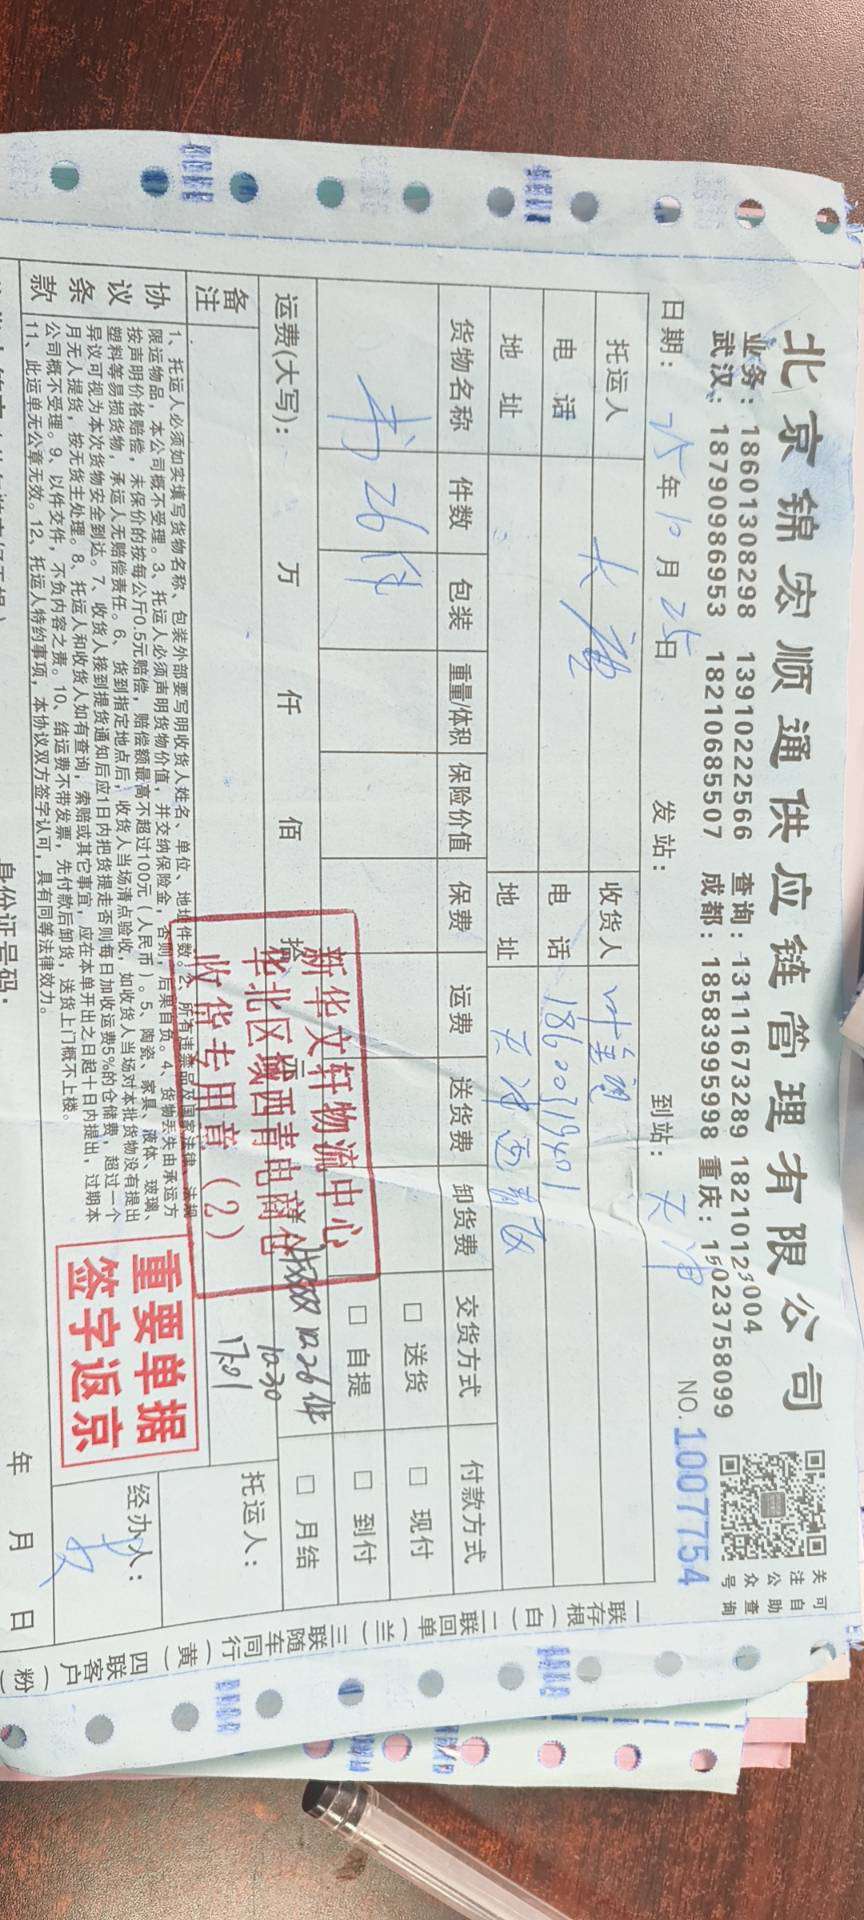 北京锦宏顺通供应链管理有限公司
业务：18601308298 13910222566 查询：13111673289 18210123004
武汉：18790986953 18210685507 成都：18583995998 重庆：15023758099
关注公众号
可自助查询
日期： 25年10月25日 发站： 到站：天津 NO.1007754
托运人 大唐 收货人
电话 电话 18620319401
地址 地址 天津西青区
货物名称 件数 包装 重量/体积 保险价值 保费 运费 送货费 卸货费 交货方式 付款方式
书 26件 □ 送货 □ 现付
□ 自提 □ 到付
运费(大写)： 万 仟 佰 拾 □ 月结
26件
10.30
17:01
新华文轩物流中心
华北区域西青电商仓
收货专用章（2）
备注
托运人：
协议条款
1、托运人必须如实填写货物名称、包装外部要写明收货人姓名、单位、地址件数。2、所有违禁品及国家法律、法规
限运物品，本公司概不受理。3、托运人必须声明货物价值，并交纳保险金，否则，后果自负。4、货物丢失由承运方
按声明价格赔偿，未保价的按每公斤0.5元赔偿，赔偿额最高不超过100元（人民币）。5、陶瓷、家具、液体、玻璃、
塑料等易损货物，承运人无赔偿责任。6、货到指定地点后，收货人当场清点验收，如收货人当场对本批货物没有提出
异议可视为本次货物安全到达。7、收货人接到提货通知后应1日内把货提走否则每日加收运费5%的仓储费，超过一个
月无人提货，按无货主处理。8、托运人和收货人如有查询，索赔或其它事宜，应在本单开出之日起十日内提出，过期本
公司概不受理。9、以件交件，不负内容之责。10、结运费不带发票，先付款后卸货，送货上门概不上楼。
11、此运单无公章无效。12、托运人特约事项，本协议双方签字认可，具有同等法律效力。
重要单据
签字返京
经办人：
身份证号码： 年 月 日
一联存根（白）二联回单（兰）三联随车同行（黄）四联客户（粉